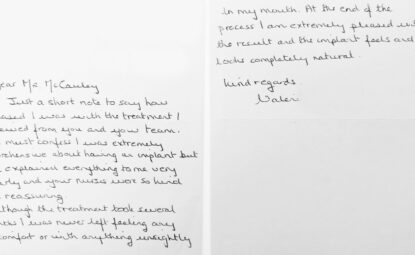 ear Mr McCauley
Just a short note to say how
ased I was with the treatment I
eived from you and your team.
must confess I was extremely
rehensive about having an implant but
explained everything to me very
arly and your nurses were so kind
reassuring.
though the treatment took several
ths I was never left feeling any
comfort or with anything unsightly
in my mouth. At the end of the
process I am extremely pleased wit
the result and the implant feels and
looks completely natural.
kind regards